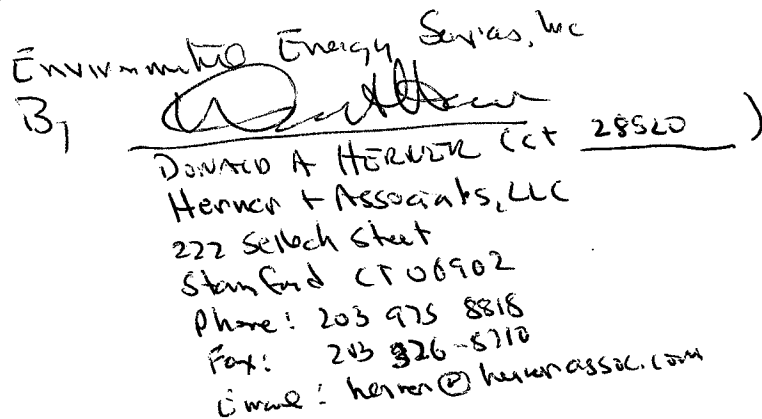 Environmental Energy Services, Inc
By
DONALD A HERNER (CT 28520)
Herner + Associates, LLC
222 Selleck Street
Stamford CT 06902
Phone: 203 975 8818
Fax: 203 326-8710
Email: herner@hernerassoc.com